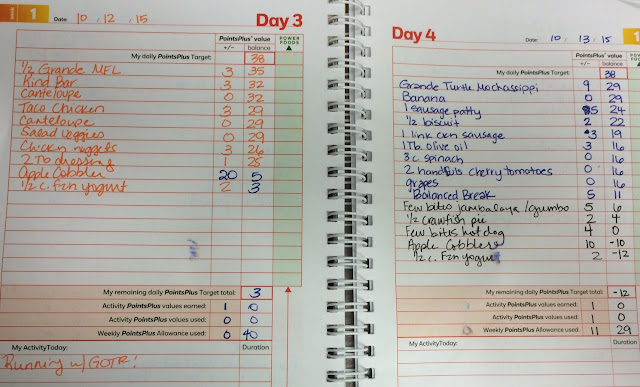 1 Date: 10 12 15 Day 3
PointsPlus® value POWER FOODS
+/- balance
My daily PointsPlus Target: 38
1/2 Grande MFL 3 35
Kind Bar 3 32
Canteloupe 0 32
Taco Chicken 3 29
Canteloupe 0 29
Salad veggies 0 29
Chicken nuggets 3 26
2 Tb dressing 1 25
Apple Cobbler 20 5
1/2 c. Fzn yogurt 2 3
My remaining daily PointsPlus Target total: 3
Activity PointsPlus values earned: 1 0
Activity PointsPlus values used: 0 0
Weekly PointsPlus Allowance used: 0 40
My Activity Today: Duration
Running w/ GOTR!
Day 4 Date: 10 13 15 1
PointsPlus® value
+/- balance
My daily PointsPlus Target: 38
Grande Turtle Mochassippi 9 29
Banana 0 29
1 sausage patty 5 24
1/2 biscuit 2 22
1 link ckn sausage 3 19
1 Tb. olive oil 3 16
3 c. spinach 0 16
2 handfuls cherry tomatoes 0 16
grapes 0 16
Balanced Break 5 11
Few bites jambalaya/gumbo 5 6
1/2 crawfish pie 2 4
Few bites hot dog 4 0
Apple Cobbler 10 -10
1/2 c. Fzn yogurt 2 -12
My remaining daily PointsPlus Target total: -12
Activity PointsPlus values earned: 1 0
Activity PointsPlus values used: 1 0
Weekly PointsPlus Allowance used: 11 29
My Activity Today: Duration